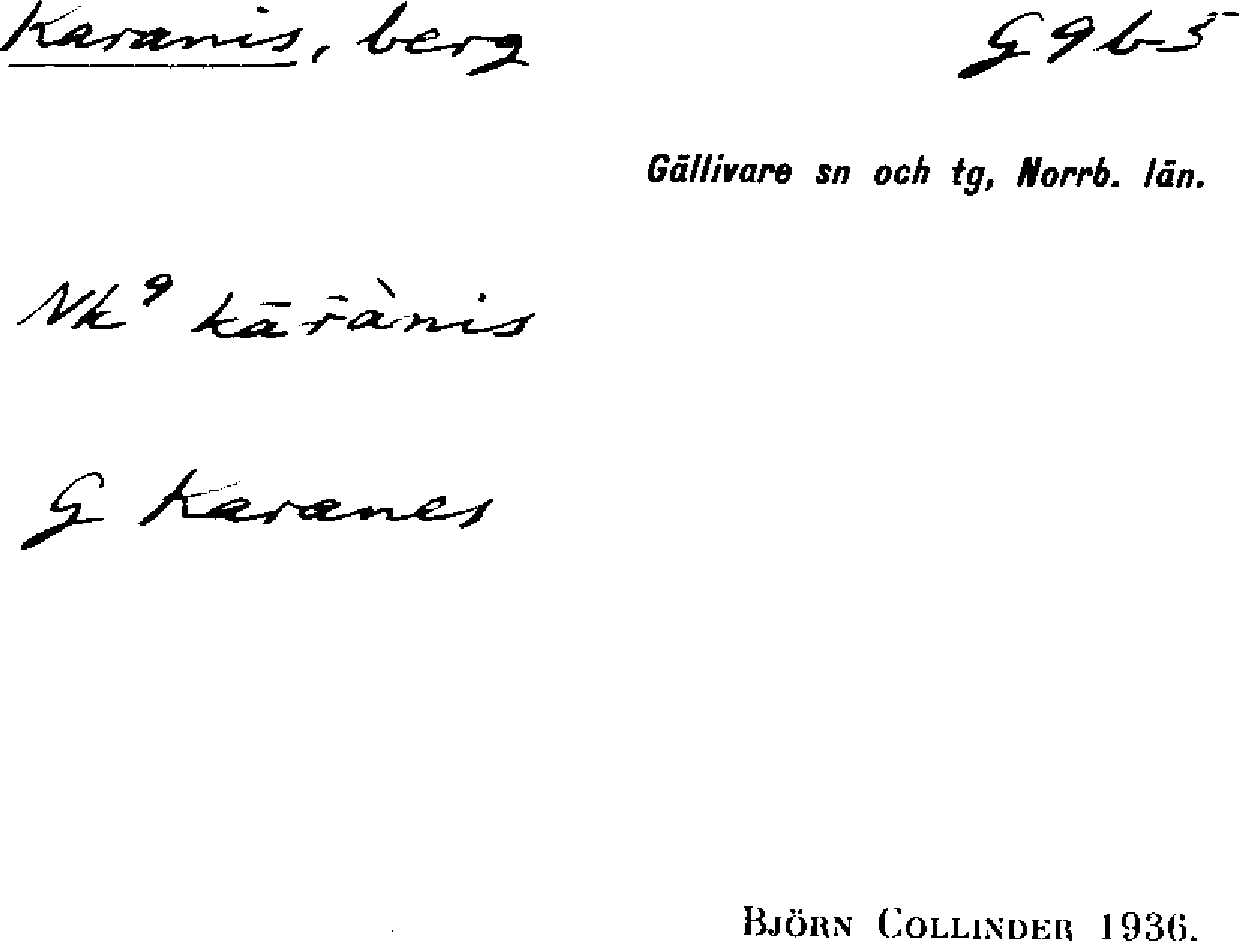 Karanis, berg G9b5
Gällivare sn och tg, Norrb. län.
Nk⁹ kār̄ànis
G Karanes
BJÖRN COLLINDER 1936.